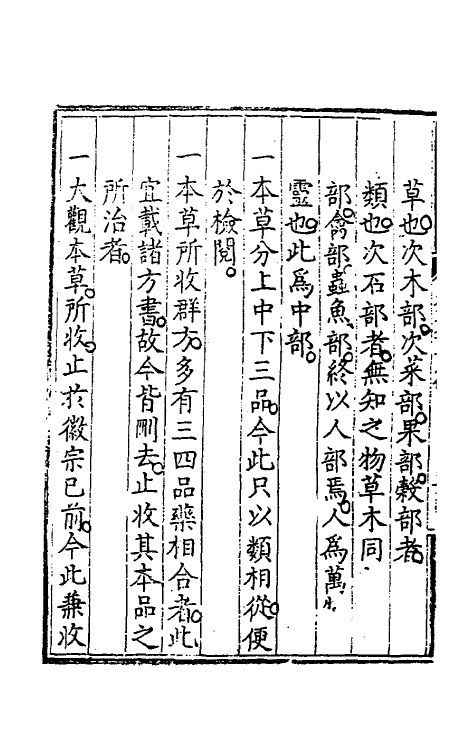 草也次木部次菜部果部穀部者
類也次石部者無知之物草木同
部禽部蟲魚部終以人部焉人爲萬
靈也此爲中部
一本草分上中下三品今此只以類相從便
於檢閱
一本草所收群方多有三四品藥相合者此
宜載諸方書故今皆刪去止收其本品之
所治者
一大觀本草所收止於徽宗已前今此兼收